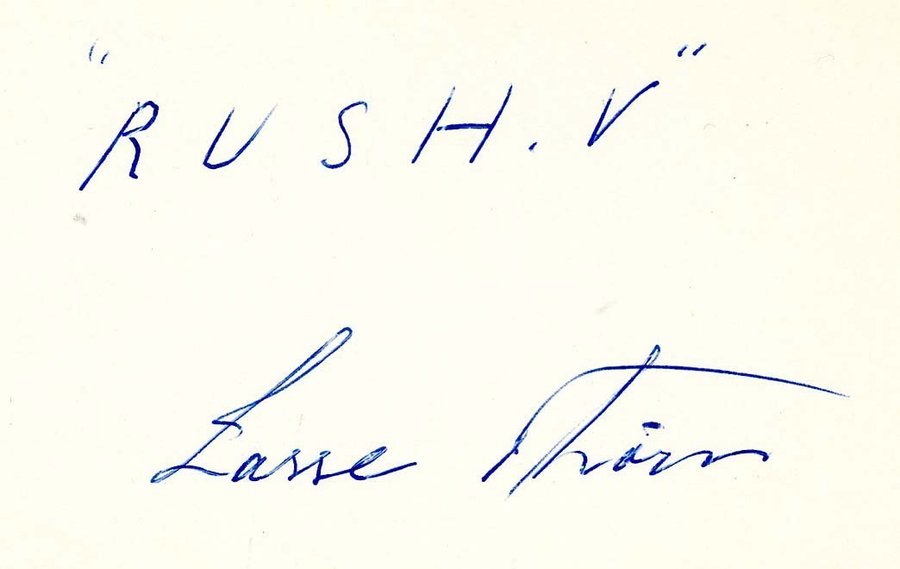 "RUSH. V"
Lasse Thörn